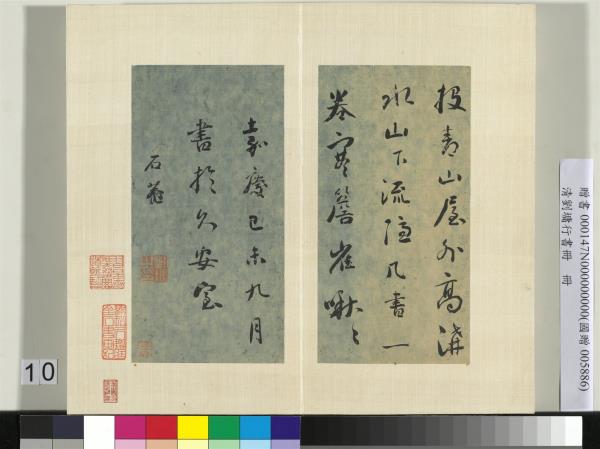 投青山屋外高溝
水山下流隱几書一
卷寒簷雀啾〻
嘉慶己未九月
書於久安室
石菴
10
贈書 000147N000000000(國贈 005886)
清劉墉行書冊 冊